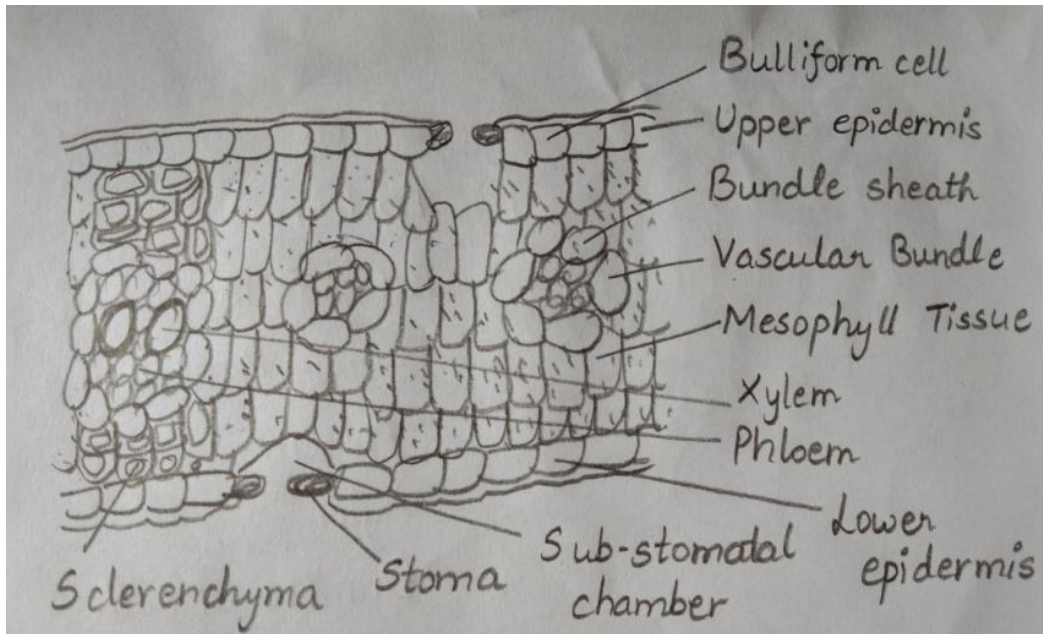 Bulliform cell
Upper epidermis
Bundle sheath
Vascular Bundle
Mesophyll Tissue
Xylem
Phloem
Lower
epidermis
Sub-stomatal
chamber
Stoma
Sclerenchyma